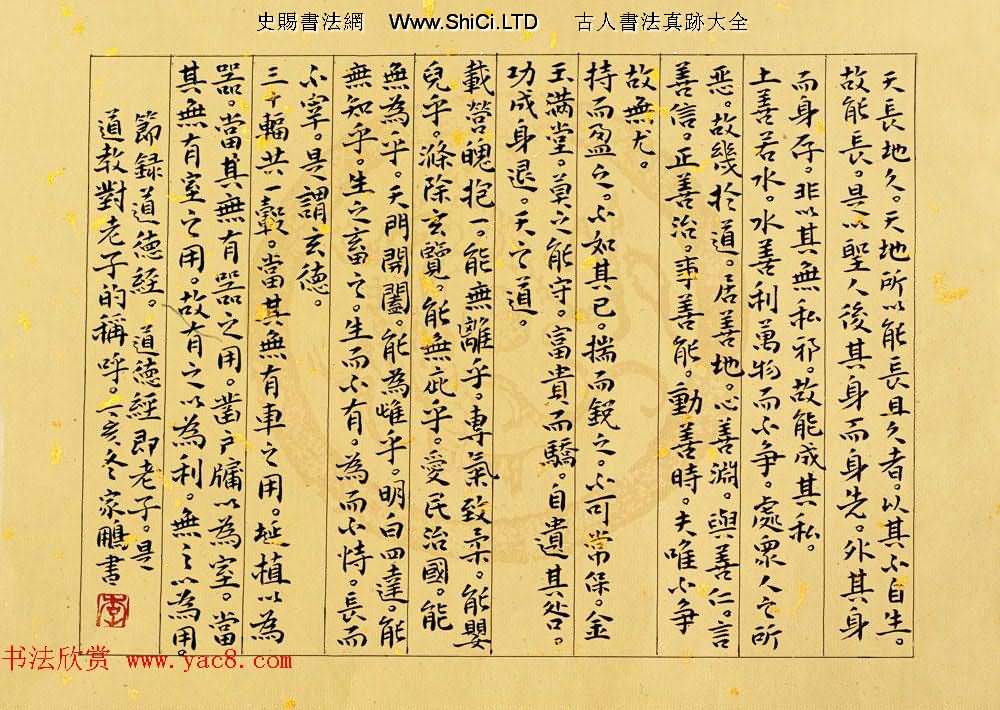 史賜書法網 Www.ShiCi.LTD 古人書法真跡大全
天長地久。天地所以能長且久者。以其不自生。
故能長。是以聖人後其身而身先。外其身
而身存。非以其無私邪。故能成其私。
上善若水。水善利萬物而不争。處衆人之所
惡。故幾於道。居善地。心善淵。與善仁。言
善信。正善治。事善能。動善時。夫唯不争
故無尤。
持而盈之。不如其已。揣而銳之。不可常保。金
玉满堂。莫之能守。富貴而驕。自遺其咎。
功成身退。天之道。
載營魄抱一。能無離乎。專氣致柔。能嬰
兒乎。滌除玄覽。能無疵乎。愛民治國。能
無為乎。天門開闔。能為雌乎。明白四達。能
無知乎。生之畜之。生而不有。為而不恃。長而
不宰。是謂玄德。
三十輻共一轂。當其無有車之用。埏植以為
器。當其無有器之用。鑿户牖以為室。當
其無有室之用。故有之以為利。無之以為用。
節録道德經。道德經即老子。是
道教對老子的稱呼。亥冬家鵬書
书法欣赏 www.yac8.com